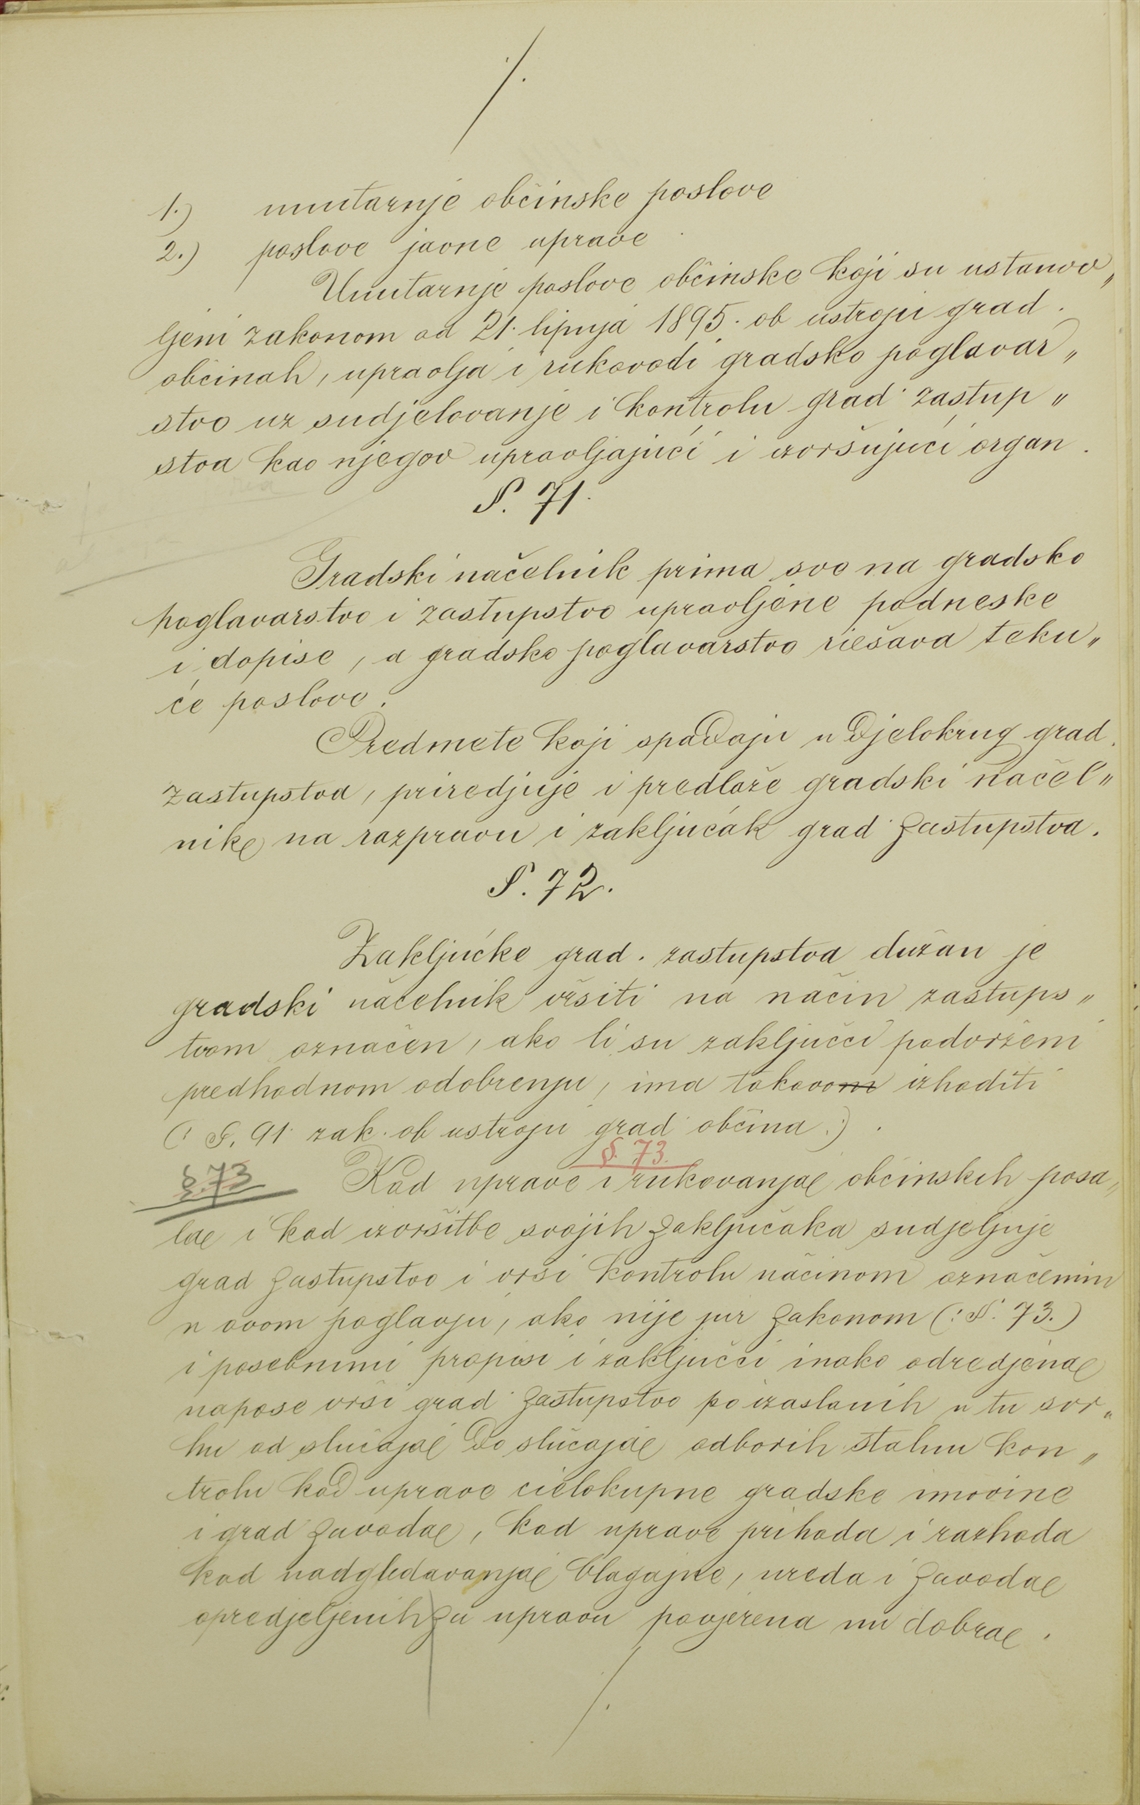 ./.
1.) unutarnje občinske poslove
2.) poslove javne uprave
Unutarnje poslove občinske koji su ustanov„
ljeni zakonom od 21. lipnja 1895. ob ustroju grad.
občinah, upravlja i rukovodi gradsko poglavar„
stvo uz sudjelovanje i kontrolu grad. zastup„
stva kao njegov upravljajući i izvršujući organ.
§. 71.
Gradski načelnik prima sve na gradsko
poglavarstvo i zastupstvo upravljene podneske
i dopise, a gradsko poglavarstvo riešava teku„
će poslove.
Predmete koji spadaju u djelokrug grad.
zastupstva, priredjuje i predlaže gradski načel„
nik na razpravu i zaključak grad. zastupstva.
§. 72.
Zaključke grad. zastupstva dužan je
gradski načelnik vršiti na način zastups„
tvom označen, ako li su zaključci podvrženi
predhodnom odobrenju, ima takovom izhoditi
(: §. 91. zak. ob ustroju grad. občina :).
§. 73.
§. 73 Kod uprave i rukovanja občinskih posa„
la i kod izvršitbe svojih zaključaka sudjeluje
grad zastupstvo i vrši kontrolu načinom označenim
u ovom poglavju, ako nije jur zakonom (: §. 73.)
i posebnimi propisi i zaključci inako odredjena
napose vrši grad. zastupstvo po izaslanih u tu svr„
hu od slučaja do slučaja odborih stalnu kon„
trolu kod uprave cielokupne gradske imovine
i grad zavoda, kod uprave prihoda i razhoda
kod nadgledavanja blagajne, ureda i zavoda
opredjeljenih za upravu povjerena mu dobra.
./.